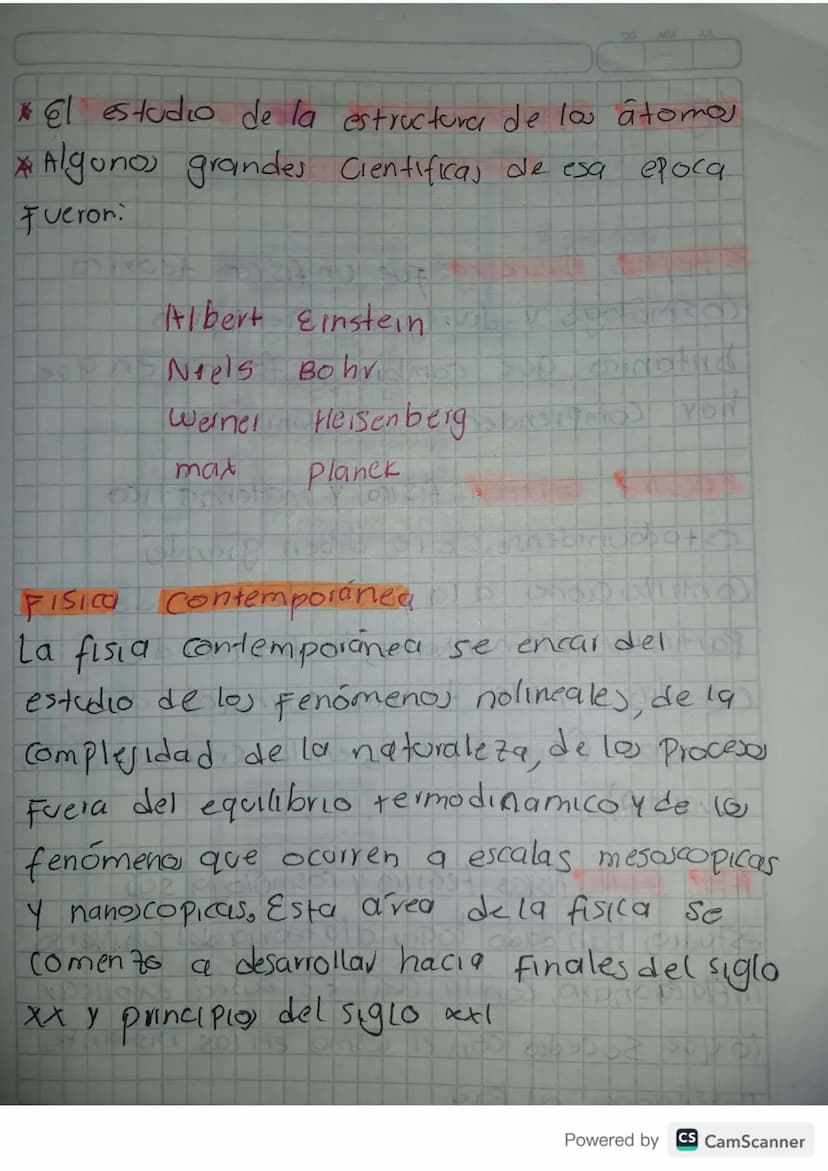 * El estudio de la estructura de los átomos
* Algunos grandes Cientificas de esa epoca
Fueron:
Albert Einstein
Niels Bohr
Werner Heisenberg
max Planck
FISICA Contemporánea
La fisia contemporánea se encar del
estudio de los Fenómenos nolineales, de la
Complejidad de la naturaleza, de los Procesos
Fuera del equilibrio termodinamico y de los
fenómenos que ocurren a escalas mesoscopicas
y nanoscopicas. Esta área de la fisica se
comenzo a desarrollar hacia finales del siglo
xx y principios del siglo xxI
Powered by CS CamScanner